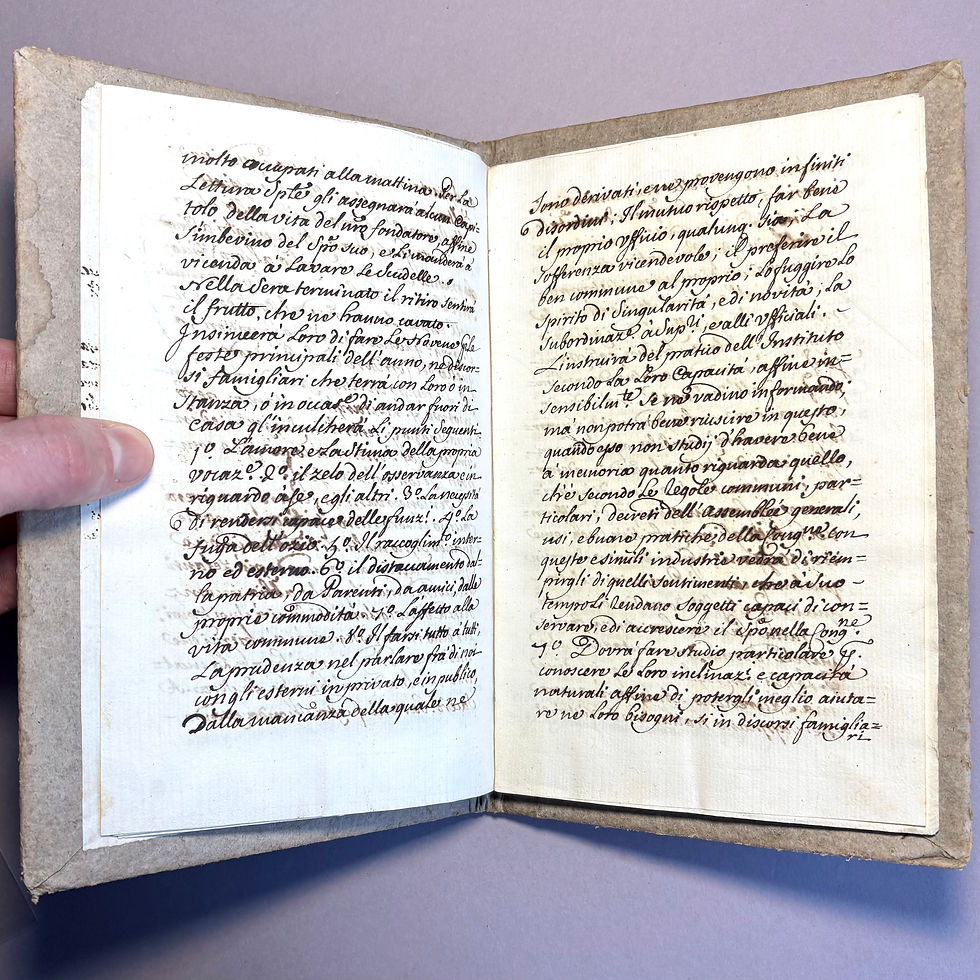 molto occupati alla mattina. Per La
Lettura Sp.le gli assegnarà alcun Capi=
tolo della vita del fondatore, affine
S'imbevino del Spo suo, e Li manderà à
vicenda à Lavare Le Scudelle.
Nella Sera terminato il ritiro Sentirà
il frutto, che ne hanno cavato.
Insinuerà Loro di fare Le Novene
feste principali dell'anno, ne discor=
si Famigliari che terrà con Loro ò in
Stanza, ò in occas.e di andar fuori di
casa gl'inculcherà Li punti Seguenti
1.o L'amore e La Stima della propria
vocaz.e 2.o il zelo dell'osservanza e in
riguardo à se, e gli altri. 3.o La necessità
di rendersi capace delle funz.i 4.o La
fuga dell'ozio. 5.o Il raccoglim.to inter=
no ed esterno. 6.o il distaccamento dal=
la patria, da Parenti, da amici, dalle
proprie commodità. 7.o L'affetto alla
vita commune. 8.o Il farsi tutto à tutti,
La prudenza nel parlare frà di noi
con gli esterni in privato, e in publico,
Dalla mancanza della quale ne
Sono derivati, e ne provengono infiniti
disordini, Il mutuo rispetto, far bene
il proprio Uffizio, qualunq. Sia, La
Sofferenza vicendevole; Il preferire il
ben commune al proprio; Lo fuggire Lo
Spirito di Singularità, e di novità, La
Subordinaz.e à Sup.ri, e alli Ufficiali.
L'instruirà del pratico dell'Instituto
Secondo La Loro Capacità, affine in=
sensibilm.te Se ne vadino informando,
ma non potrà bene riuscire in questo,
quando esso non Studij d'havere bene
à memoria quanto riguarda quello,
che Secondo Le Regole communi, par=
ticolari, decreti dell'Assemblee generali,
usi, e buone pratiche della Cong.ne con
queste e Simili industrie vedrà di riem=
pirgli di quelli Sentimenti, che à Suo
tempo Li rendano Soggetti capaci di con=
servare, e di accrescere il Spo nella Cong.ne
7.o Dovrà fare Studio particolare
conoscere Le Loro inclinaz.i e capacità
naturali affine di potergli meglio aiuta=
re ne Loro bisogni, Si in discorsi famiglia=
ri